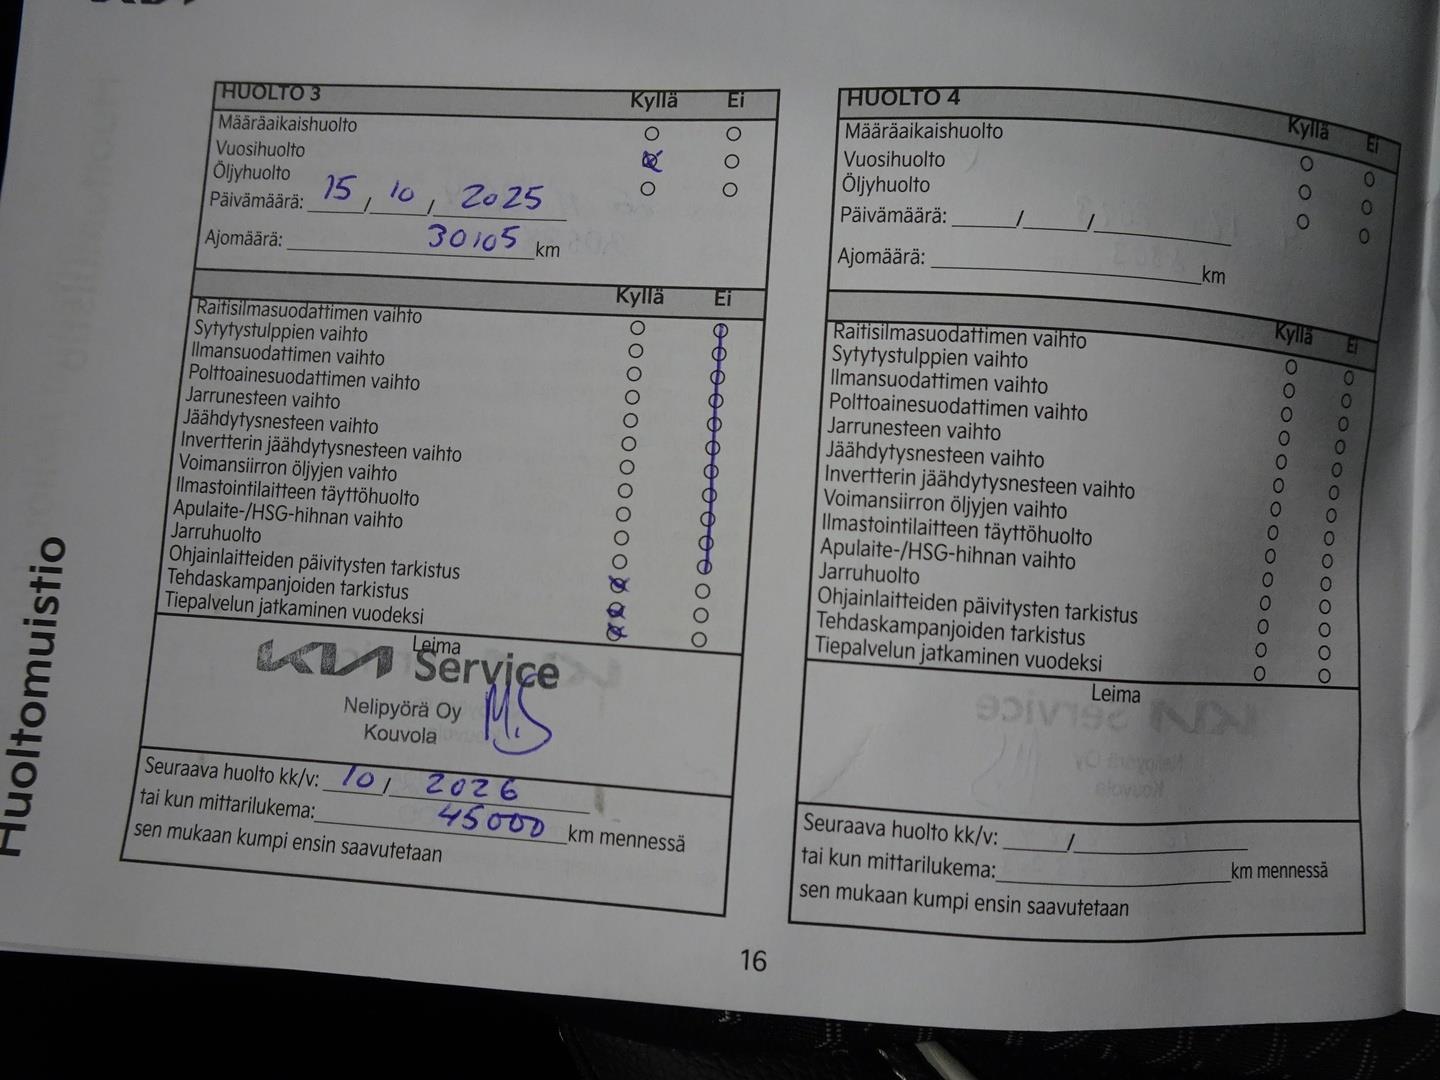 Huoltomuistio
HUOLTO 3 Kyllä Ei
Määräaikaishuolto
Vuosihuolto
Öljyhuolto
Päivämäärä: 15 / 10 / 2025
Ajomäärä: 30105 km
Kyllä Ei
Raitisilmasuodattimen vaihto
Sytytystulppien vaihto
Ilmansuodattimen vaihto
Polttoainesuodattimen vaihto
Jarrunesteen vaihto
Jäähdytysnesteen vaihto
Invertterin jäähdytysnesteen vaihto
Voimansiirron öljyjen vaihto
Ilmastointilaitteen täyttöhuolto
Apulaite-/HSG-hihnan vaihto
Jarruhuolto
Ohjainlaitteiden päivitysten tarkistus
Tehdaskampanjoiden tarkistus
Tiepalvelun jatkaminen vuodeksi
Leima
KIA Service
Nelipyörä Oy
Kouvola
MS
Seuraava huolto kk/v: 10 / 2026
tai kun mittarilukema: 45000 km mennessä
sen mukaan kumpi ensin saavutetaan
HUOLTO 4 Kyllä Ei
Määräaikaishuolto
Vuosihuolto
Öljyhuolto
Päivämäärä: / /
Ajomäärä: km
Kyllä Ei
Raitisilmasuodattimen vaihto
Sytytystulppien vaihto
Ilmansuodattimen vaihto
Polttoainesuodattimen vaihto
Jarrunesteen vaihto
Jäähdytysnesteen vaihto
Invertterin jäähdytysnesteen vaihto
Voimansiirron öljyjen vaihto
Ilmastointilaitteen täyttöhuolto
Apulaite-/HSG-hihnan vaihto
Jarruhuolto
Ohjainlaitteiden päivitysten tarkistus
Tehdaskampanjoiden tarkistus
Tiepalvelun jatkaminen vuodeksi
Leima
Seuraava huolto kk/v: /
tai kun mittarilukema: km mennessä
sen mukaan kumpi ensin saavutetaan
16